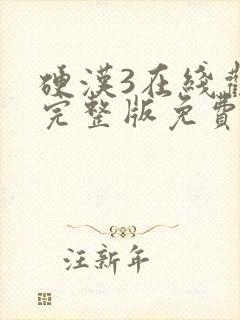 硬漢3在綫觀
完整版免費
汪新年